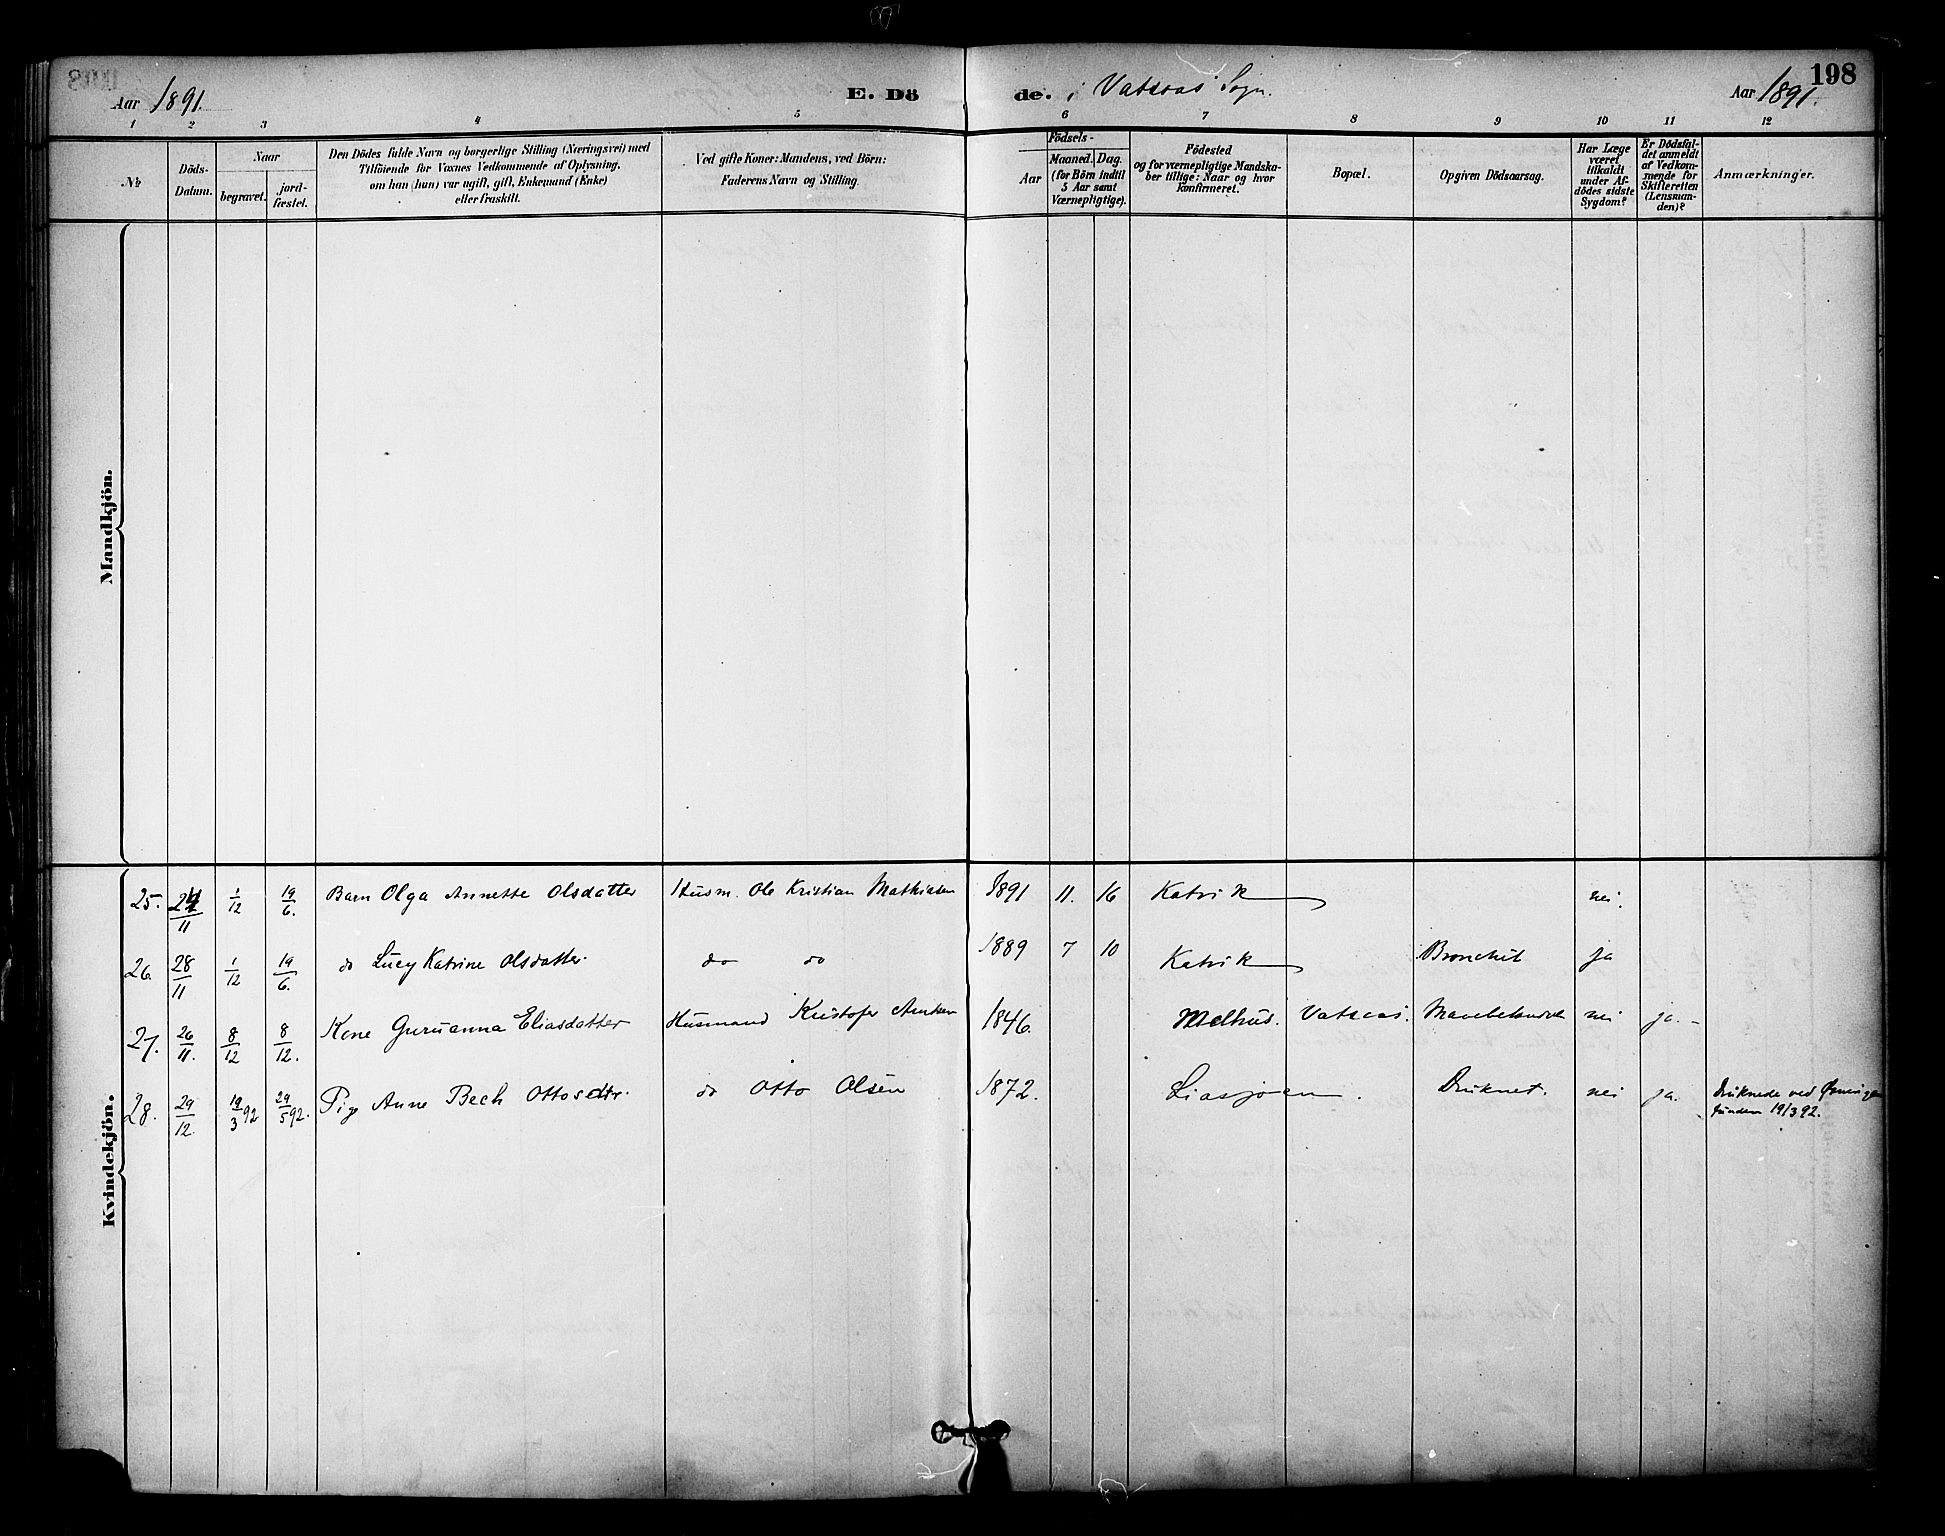 198
Aar 1891. E. Dö de. i Vatsaas Sogn. Aar 1891.
1 2 3 4 5 6 7 8 9 10 11 12
№
Döds-Datum.
Naar
begravet.
jord-fæstet.
Den Dödes fulde Navn og borgerlige Stilling (Næringsvei) med
Tilföiende for Voxnes Vedkommende af Oplysning,
om han (hun) var ugift, gift, Enkemand (Enke)
eller fraskilt.
Ved gifte Koner: Mandens, ved Börn:
Faderens Navn og Stilling.
Födsels-
Aar
Maaned. Dag.
(for Börn indtil
5 Aar samt
Værnepligtige).
Födested
og for værnepligtige Mandska-
ber tillige: Naar og hvor
Konfirmeret.
Bopæl.
Opgiven Dödsaarsag.
Har Læge
været
tilkaldt
under Af-
dödes sidste
Sygdom?
Er Dödsfal-
det anmeldt
af Vedkom-
mende for
Skifteretten
(Lensman-
den)?
Anmærkninger.
Mandkjön.
Kvindekjön.
25. 24/11 1/12 19/6. Barn Olga Annette Olsdatter Husm. Ole Kristian Mathiasen 1891 11. 16 Katvik nei.
26. 28/11 1/12 19/6. do Lucy Katrine Olsdatter. do do 1889 7 10 Katvik Bronchit ja
27. 26/11. 8/12 8/12. Kone Guruanna Eliasdatter Husmand Kristofer 1846. Melhus. Vatsaas. nei ja. -
28. 29/12. 19/3 92 29/5 92. Pige Anne Bech Ottosdtr. do Otto Olsen 1872. Liasjøen. Druknet. nei ja. Druknede ved
funden 19/3 92.